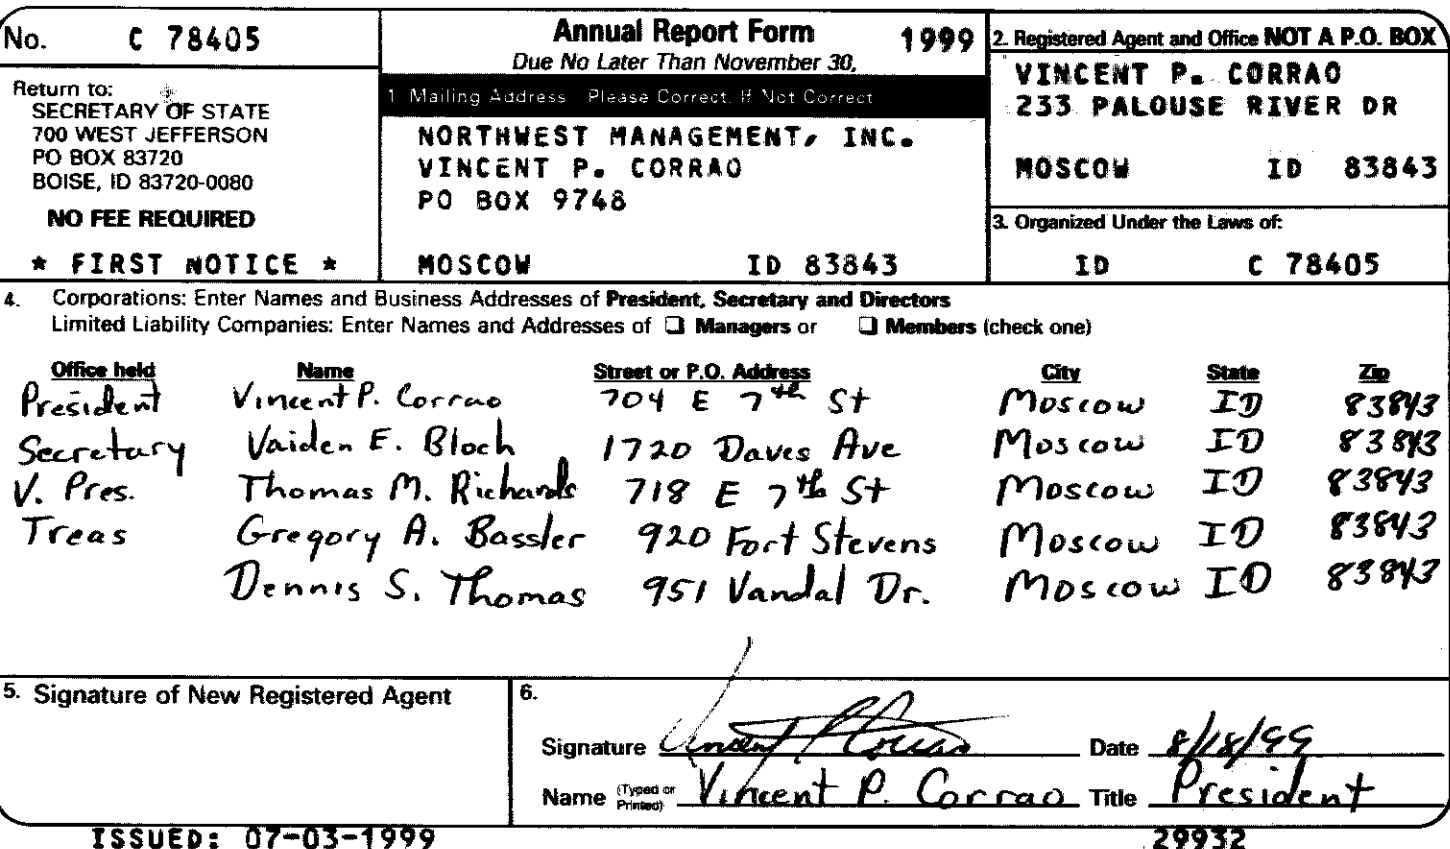 No. C 78405
Return to:
SECRETARY OF STATE
700 WEST JEFFERSON
PO BOX 83720
BOISE, ID 83720-0080
NO FEE REQUIRED
* FIRST NOTICE *
Annual Report Form 1999
Due No Later Than November 30,
1. Mailing Address Please Correct, If Not Correct
NORTHWEST MANAGEMENT, INC.
VINCENT P. CORRAO
PO BOX 9748
MOSCOW ID 83843
2. Registered Agent and Office NOT A P.O. BOX
VINCENT P. CORRAO
233 PALOUSE RIVER DR
MOSCOW ID 83843
3. Organized Under the Laws of:
ID C 78405
4. Corporations: Enter Names and Business Addresses of President, Secretary and Directors
Limited Liability Companies: Enter Names and Addresses of ❑ Managers or ❑ Members (check one)
Office held Name Street or P.O. Address City State Zip
President Vincent P. Corrao 704 E 7th St Moscow ID 83843
Secretary Vaiden E. Bloch 1720 Daves Ave Moscow ID 83843
V. Pres. Thomas M. Richards 718 E 7th St Moscow ID 83843
Treas Gregory A. Bassler 920 Fort Stevens Moscow ID 83843
Dennis S. Thomas 951 Vandal Dr. Moscow ID 83843
5. Signature of New Registered Agent
6.
Signature Vincent P Corrao Date 8/18/99
Name (Typed or Printed) Vincent P. Corrao Title President
ISSUED: 07-03-1999 29932